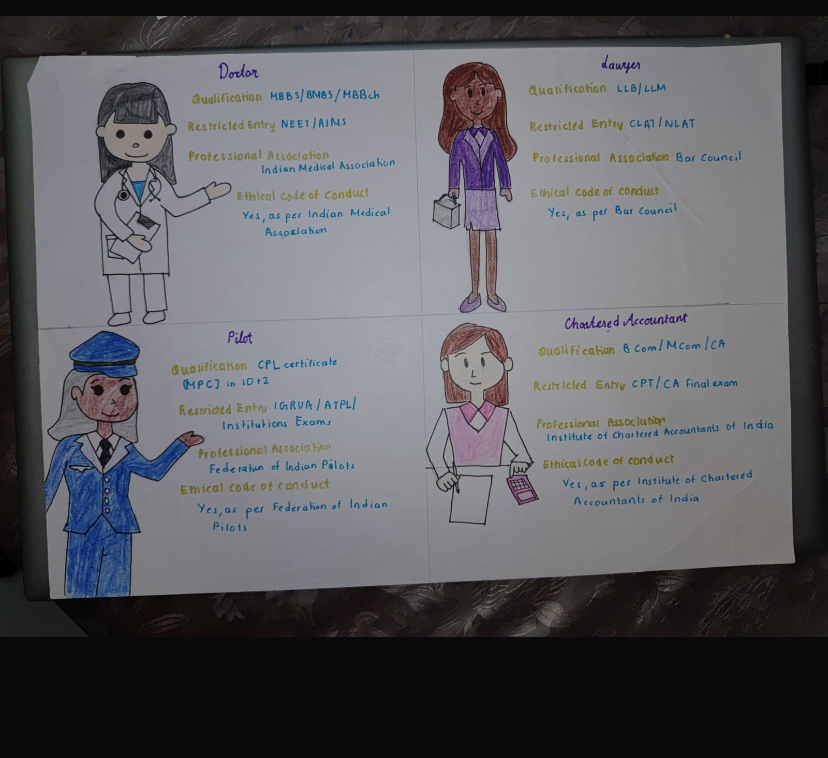 Doctor
Qualification MBBS/BMBS/MBBch
Restricted Entry NEET/AIMS
Professional Association
Indian Medical Association
Ethical Code of Conduct
Yes, as per Indian Medical
Association
Lawyer
Qualification LLB/LLM
Restricted Entry CLAT/NLAT
Professional Association Bar Council
Ethical Code of conduct
Yes, as per Bar Council
Pilot
Qualification CPL certificate
[MPC] in 10+2
Restricted Entry IGRUA/ATPL/
Institutions Exams
Professional Association
Federation of Indian Pilots
Ethical code of conduct
Yes, as per Federation of Indian
Pilots
Chartered Accountant
Qualification B Com/MCom/CA
Restricted Entry CPT/CA Final exam
Professional Association
Institute of Chartered Accountants of India
Ethical code of conduct
Yes, as per Institute of Chartered
Accountants of India